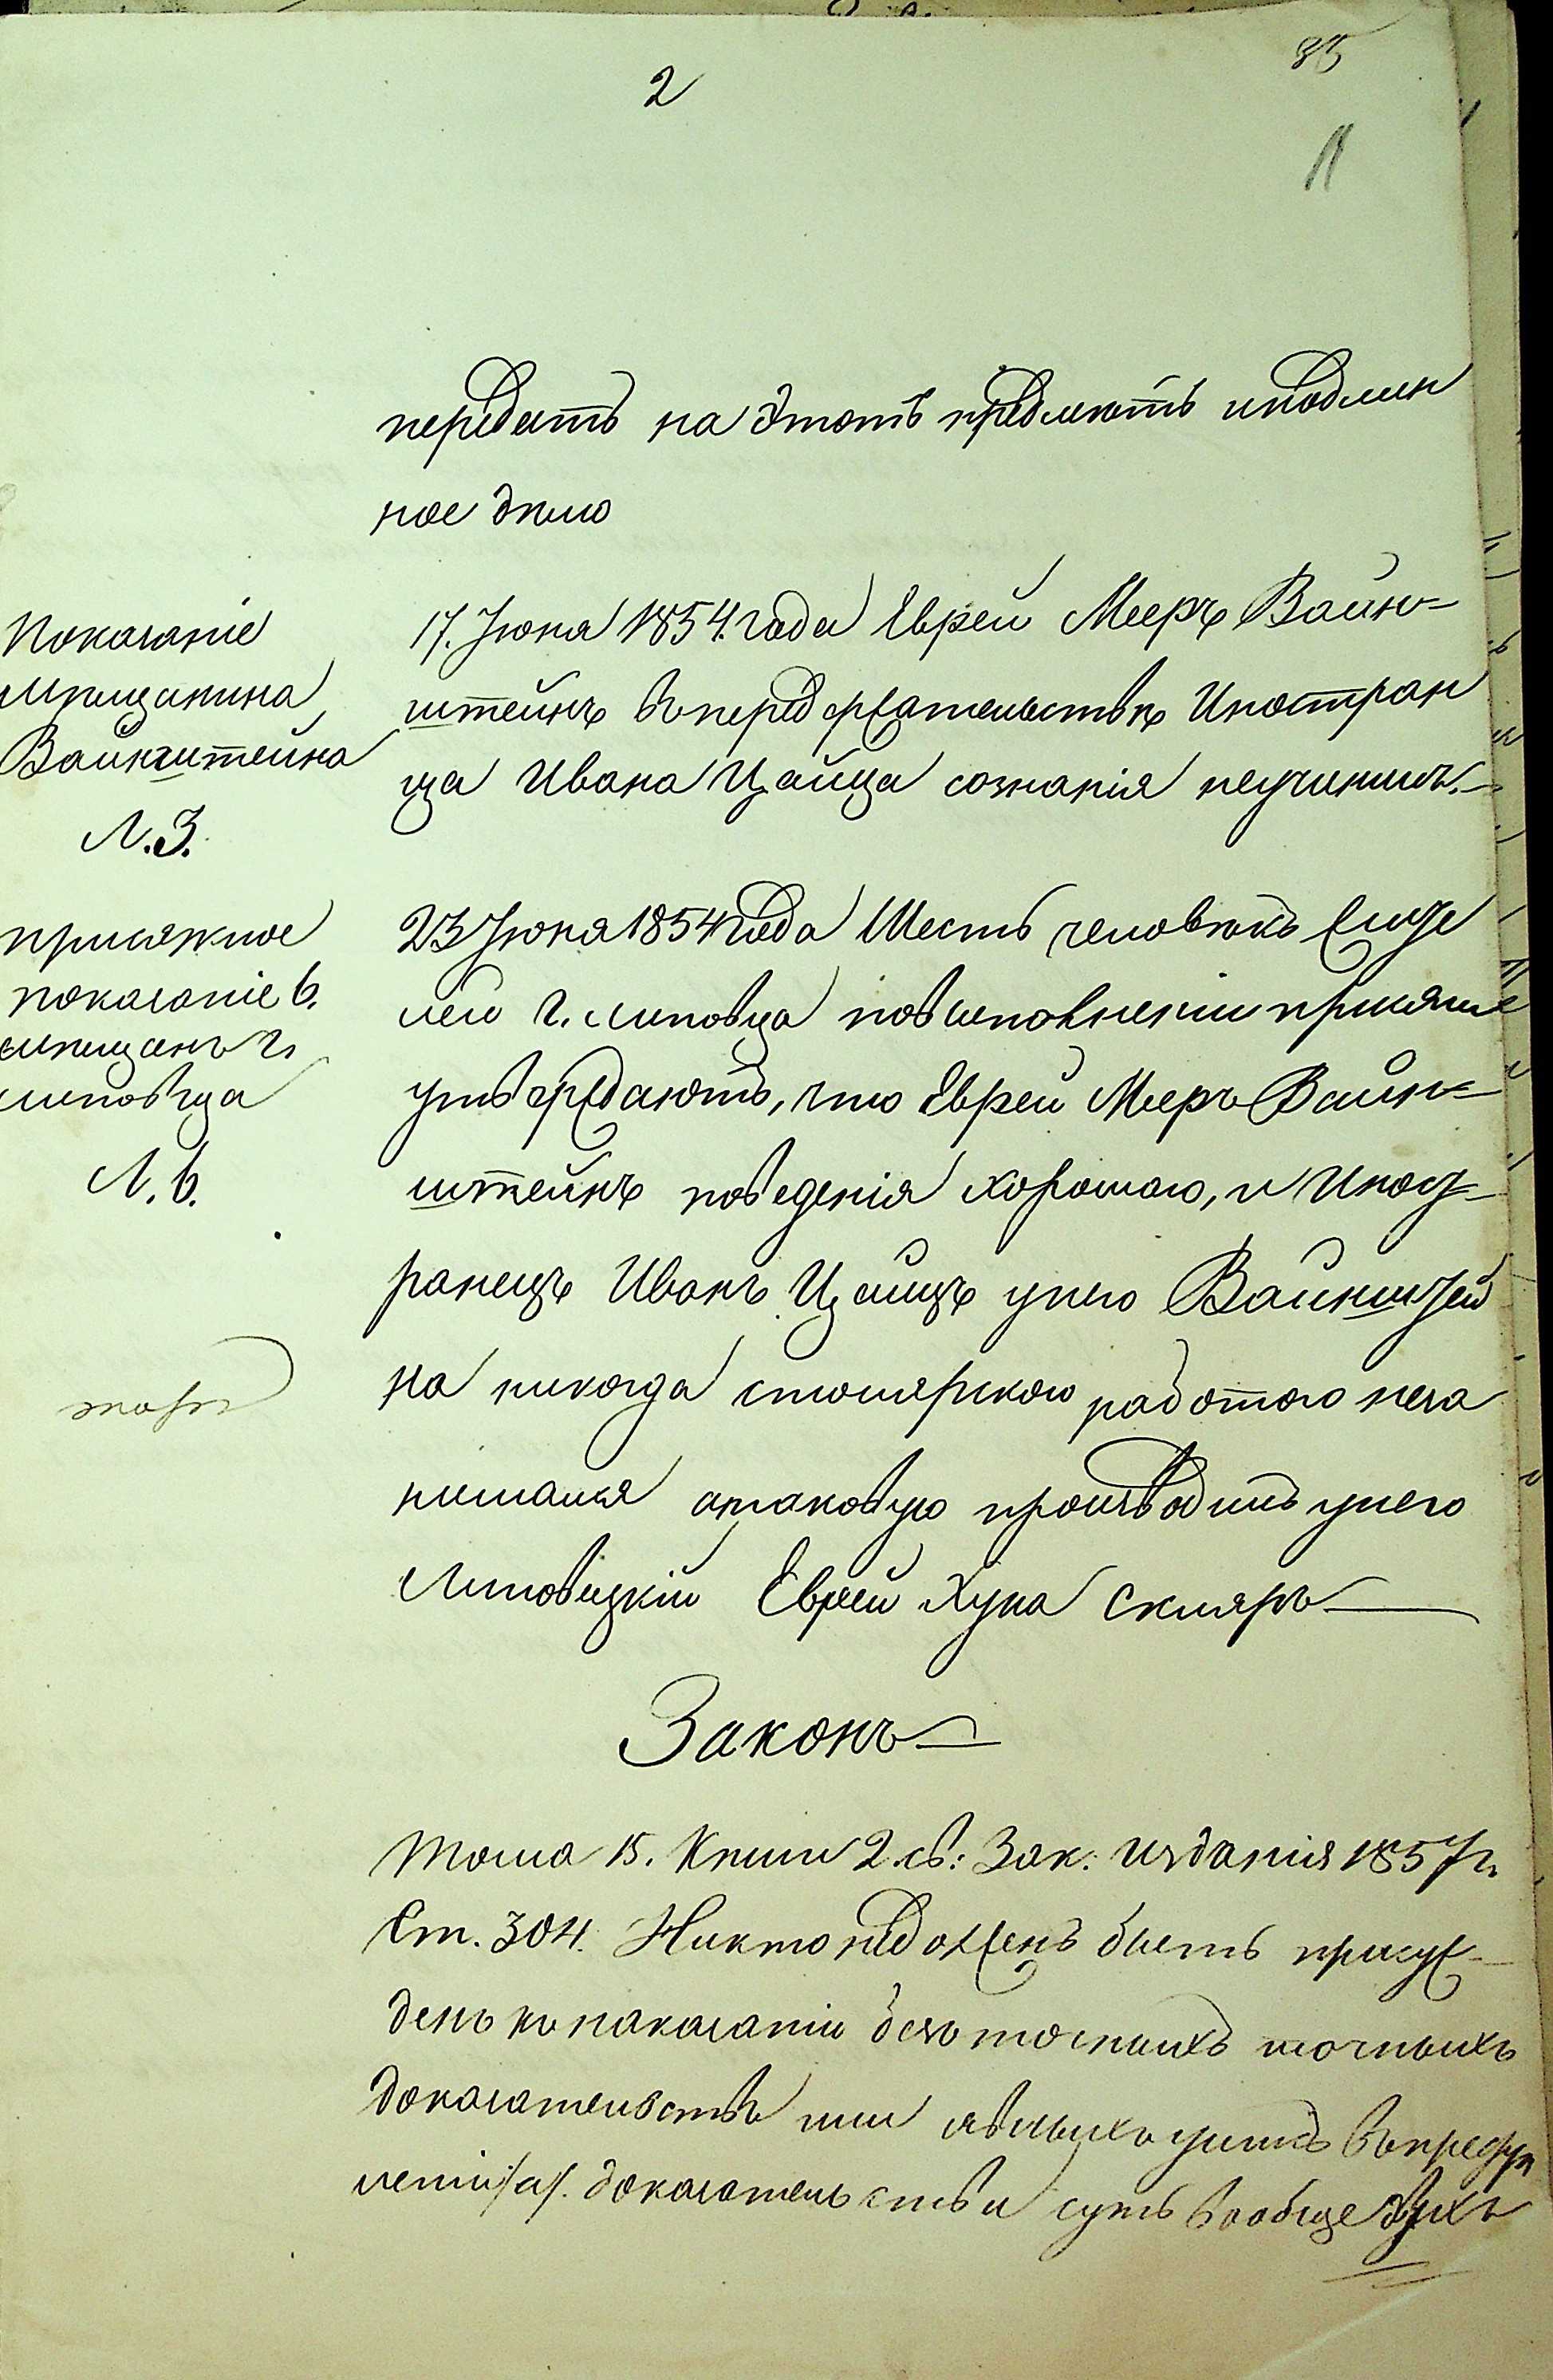 2
35
11
передать на этотъ предметъ иподлин
ное дѣло
Показаніе
мѣщанина
Вайнштейна
Л. 3.
17. Іюня 1854. года Еврей Мееръ Вайн-
штейнъ въ передержательствѣ Иностран
ца Ивана Цайца сознанія неучинилъ.-
присяжное
показаніе 6.
мѣщанъ г.
липовца
Л. 6.
23 Іюня 1854 года Шесть человѣкъ жите
лей г. липовца повыполненіи присяги
утверждаютъ, что Еврей Мееръ Вайн-
штейнъ поведенія хорошаго, и Иност-
ранецъ Иванъ Цайцъ унего Вайнштей
на никогда столярскою работою неза
нимался атаковую производилъ унего
Липовецкій Еврей Хуна Скляръ
Законъ
Тома 15. Книги 2. св: Зак. изданія 1857 г.
Ст. 304. Никто недолженъ быть присуж-
денъ къ наказанію безъ точныхъ
доказательствъ или явныхъ уликъ въпреступ
леніи /а/. доказательства суть вообще двухъ